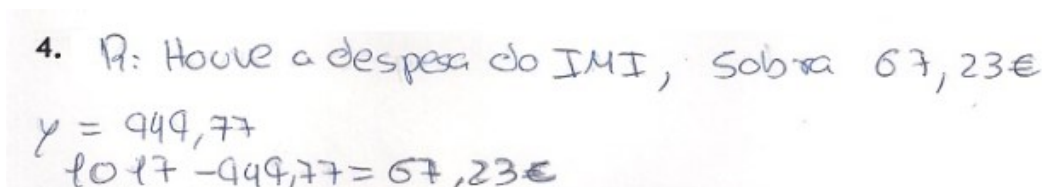 4. R: Houve a despesa do IMI, sobra 67,23€
y = 949,77
1017 - 949,77 = 67,23€